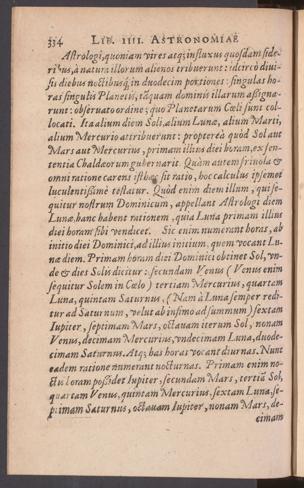 334 LIB. IIII. ASTRONOMIAE
Astrologi, quoniam vires atq; influxus quosdam side-
ribus, à natura illorum alienos tribuerunt: idcirco diui-
sis diebus noctibusq́; in duodecim portiones: singulas ho-
ras singulis Planetis, tãquam dominis illarum assigna-
runt: obseruato ordine; quo Planetarum Cœli sunt col-
locati. Ita alium diem Soli, alium Lunæ, alium Marti,
alium Mercurio attribuerunt: proptereà quòd Sol aut
Mars aut Mercurius, primam illius diei horam, ex sen-
tentia Chaldæorum gubernarit. Quàm autem friuola &
omni ratione carens isthæc sit ratio, hoc calculus ipsemet
luculentissimè testatur. Quòd enim diem illum, qui se-
quitur nostrum Dominicum, appellant Astrologi diem
Lunæ, hanc habent rationem, quia Luna primam illius
diei horam sibi vendicet. Sic enim numerant horas, ab
initio diei Dominici, ad illius initium, quem vocant Lu-
næ diem. Primam horam diei Dominici obtinet Sol, vn-
de & dies Solis dicitur: secundam Venus (Venus enim
sequitur Solem in Cœlo) tertiam Mercurius, quartam
Luna, quintam Saturnus, (Nam à Luna semper redi-
tur ad Saturnum, velut ab infimo ad summum) sextam
Iupiter, septimam Mars, octauam iterum Sol, nonam
Venus, decimam Mercurius, vndecimam Luna, duode-
cimam Saturnus. Atq; has horas vocant diurnas. Nunc
eadem ratione numerant nocturnas. Primam enim no-
ctis horam possidet Iupiter, secundam Mars, tertiã Sol,
quartam Venus, quintam Mercurius, sextam Luna, se-
ptimam Saturnus, octauam Iupiter, nonam Mars, de-
cimam